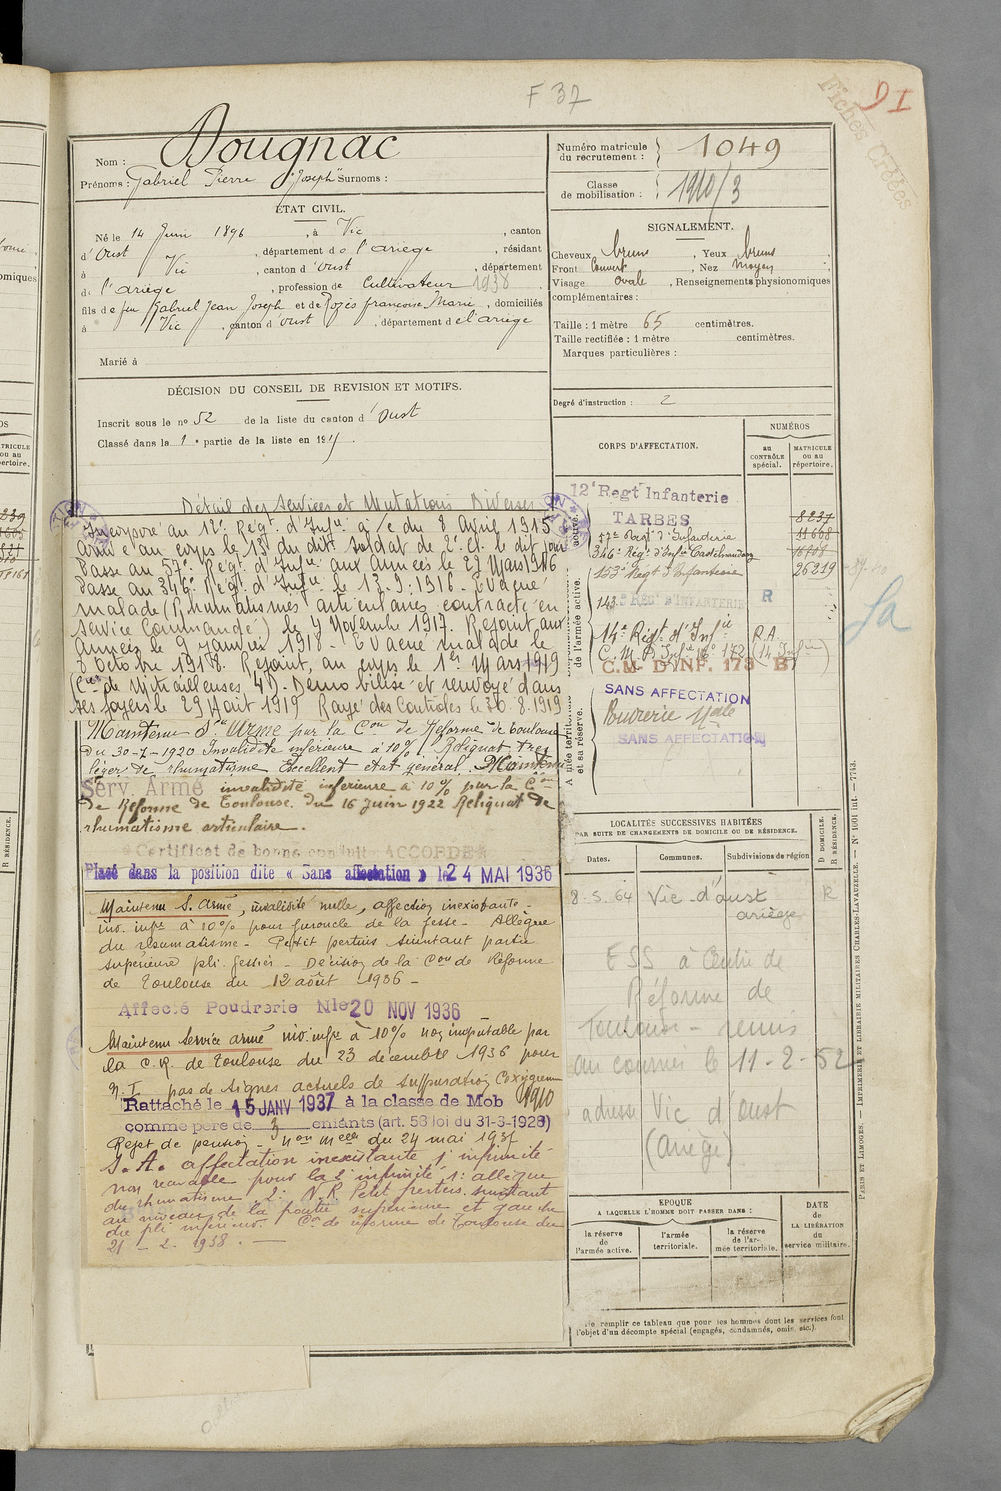 F 37
91
Fiches Créées
Nom : Dougnac
Prénoms : Gabriel Pierre "Joseph" Surnoms :
Numéro matricule du recrutement : 1049
Classe de mobilisation : 1910/3
ÉTAT CIVIL.
Né le 14 Juin 1896, à Vic, canton
d'Oust, département de l'ariège, résidant
à Vic, canton d'oust, département
de l'ariège, profession de Cultivateur 1938
fils de feu Gabriel Jean Joseph et de Rozès françoise Marie, domiciliés
à Vic, canton d'oust, département de l'ariège
Marié à
SIGNALEMENT.
Cheveux bruns, Yeux bruns
Front Couvert, Nez moyen
Visage ovale, Renseignements physionomiques
complémentaires :
Taille : 1 mètre 65 centimètres.
Taille rectifiée : 1 mètre centimètres.
Marques particulières :
Degré d'instruction : 2
DÉCISION DU CONSEIL DE REVISION ET MOTIFS.
Inscrit sous le no 52 de la liste du canton d'Oust
Classé dans la 1e partie de la liste en 191
Détail des Services et Mutations Diverses
Incorporé au 12e Regt. d'Infie à/c du 8 Avril 1915
Arrivé au corps le 13 du dit soldat de 2e cl. le dit jour
Passé au 57e Regt. d'Infie aux Armées le 23 Mars 1916
Passé au 346e Regt. d'Infie le 13.9.1916. Evacué
malade (Rhumatismes articulaires contracté en
service Commandé) le 4 Novembre 1917. Rejoint aux
armées le 9 Janvier 1918. Evacué malade le
8 Octobre 1918. Rejoint, au corps le 1er Mars 1919
(Cie de Mitrailleuses 4). Démobilisé et renvoyé dans
ses foyers le 29 Août 1919 Rayé des Contrôles le 30.8.1919
Maintenu Sce Armé par la Con de Réforme de Toulouse
du 30-7-1920 Invalidité inférieure à 10% Reliquat très
léger de rhumatisme Excellent état général. Maintenu
Serv. Armé invalidité inférieure à 10% par la Con
de Réforme de Toulouse du 16 juin 1922 Reliquat de
rhumatisme articulaire.
Certificat de bonne conduite ACCORDÉ
Placé dans la position dite « Sans affectation » le 24 MAI 1936
Maintenu S. Armé, invalidité nulle, affection inexistante
inv. infre à 10% pour furoncle de la fesse - Allègue
du rhumatisme - Petit pertuis suintant partie
supérieure pli fessier - Décision de la Con de Réforme
de Toulouse du 12 août 1936 -
Affecté Poudrerie Nle 20 NOV 1936
Maintenu Service armé inv. infre à 10% non imputable par
la C.R. de Toulouse du 23 décembre 1936 pour
pas de signes actuels de suppuration
Rattaché le 15 JANV 1937 à la classe de Mob 1910
comme père de 3 enfants (art. 58 loi du 31-3-1928)
Rejet de pension - du 24 mai 1937
S. A. affectation inexistante 1e infirmité
non recevable pour la 2e infirmité 1: allègue
du rhumatisme 2: N.R. Petit pertuis suintant
au niveau de la partie supérieure et gauche
du pli inférieur. Con de réforme de Toulouse du
21 - 2 - 1938. -
CORPS D'AFFECTATION.
NUMÉROS
au CONTRÔLE spécial.
MATRICULE ou au répertoire.
de l'armée active.
12e Regt Infanterie
TARBES 8237
57e Regt d'Infanterie
346e Regt d'Infie Castelnaudary
153e Regt d'Infanterie 26219
143e Regt D'INFANTERIE R
14e Regt d'Infie R.A.
C.M.P. Infie 16e 172 (14 Infie)
C.M. D'INF. 173 B
et sa réserve.
SANS AFFECTATION
Poudrerie Nale
SANS AFFECTATION
LOCALITÉS SUCCESSIVES HABITÉES
PAR SUITE DE CHANGEMENTS DE DOMICILE OU DE RÉSIDENCE.
D DOMICILE.
R RÉSIDENCE.
Dates. Communes. Subdivisions de région
8-5.64 Vic d'oust R
ariège
ESS à Centre de
Réforme de
Toulouse - remis
au courrier le 11-2-52
adresse Vic d'oust
(ariège)
EPOQUE
A LAQUELLE L'HOMME DOIT PASSER DANS :
la réserve de l'armée active.
l'armée territoriale.
la réserve de l'armée territoriale.
DATE de LA LIBÉRATION du service militaire.
Ne remplir ce tableau que pour les hommes dont les services font
l'objet d'un décompte spécial (engagés, condamnés, omis, etc.).
PARIS ET LIMOGES. — IMPRIMERIE ET LIBRAIRIE MILITAIRES CHARLES-LAVAUZELLE. — N° 1001 int. — 7743.